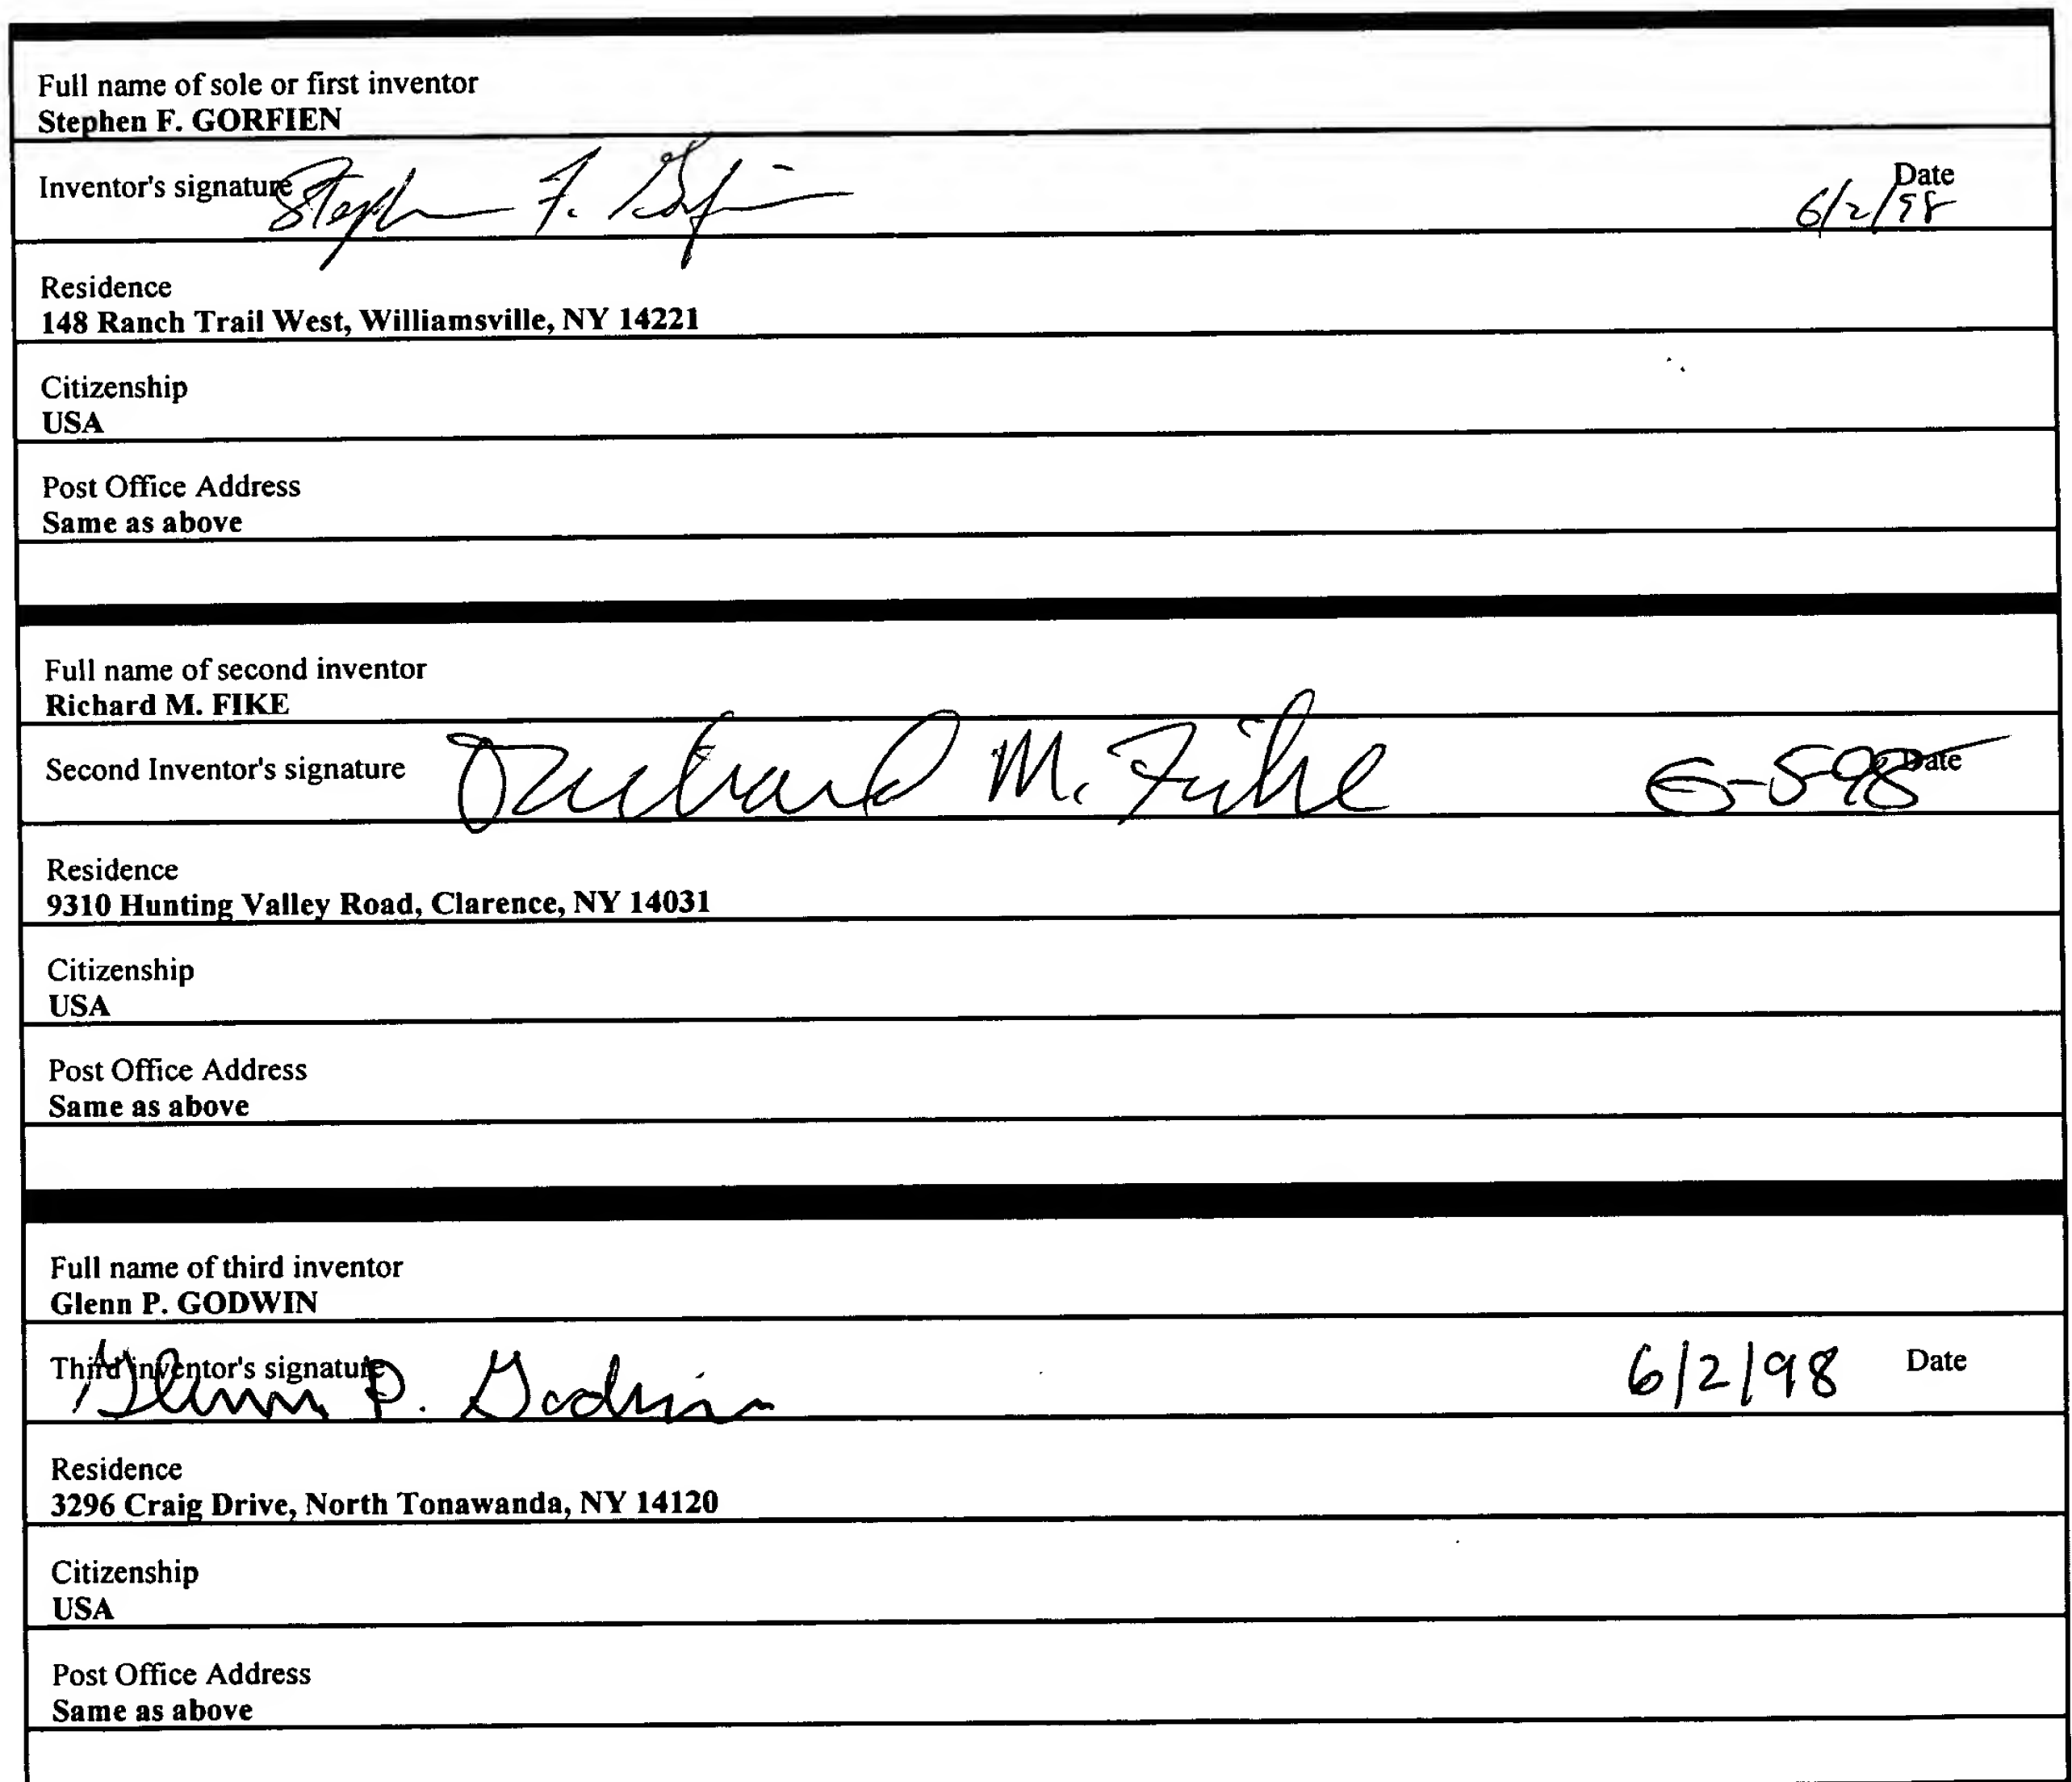 Full name of sole or first inventor
Stephen F. GORFIEN
Inventor's signature Stephen F. Gorfien 6/2/98 Date
Residence
148 Ranch Trail West, Williamsville, NY 14221
Citizenship
USA
Post Office Address
Same as above
Full name of second inventor
Richard M. FIKE
Second Inventor's signature Richard M. Fike 6-5-98 Date
Residence
9310 Hunting Valley Road, Clarence, NY 14031
Citizenship
USA
Post Office Address
Same as above
Full name of third inventor
Glenn P. GODWIN
Third inventor's signature Glenn P. Godwin 6/2/98 Date
Residence
3296 Craig Drive, North Tonawanda, NY 14120
Citizenship
USA
Post Office Address
Same as above